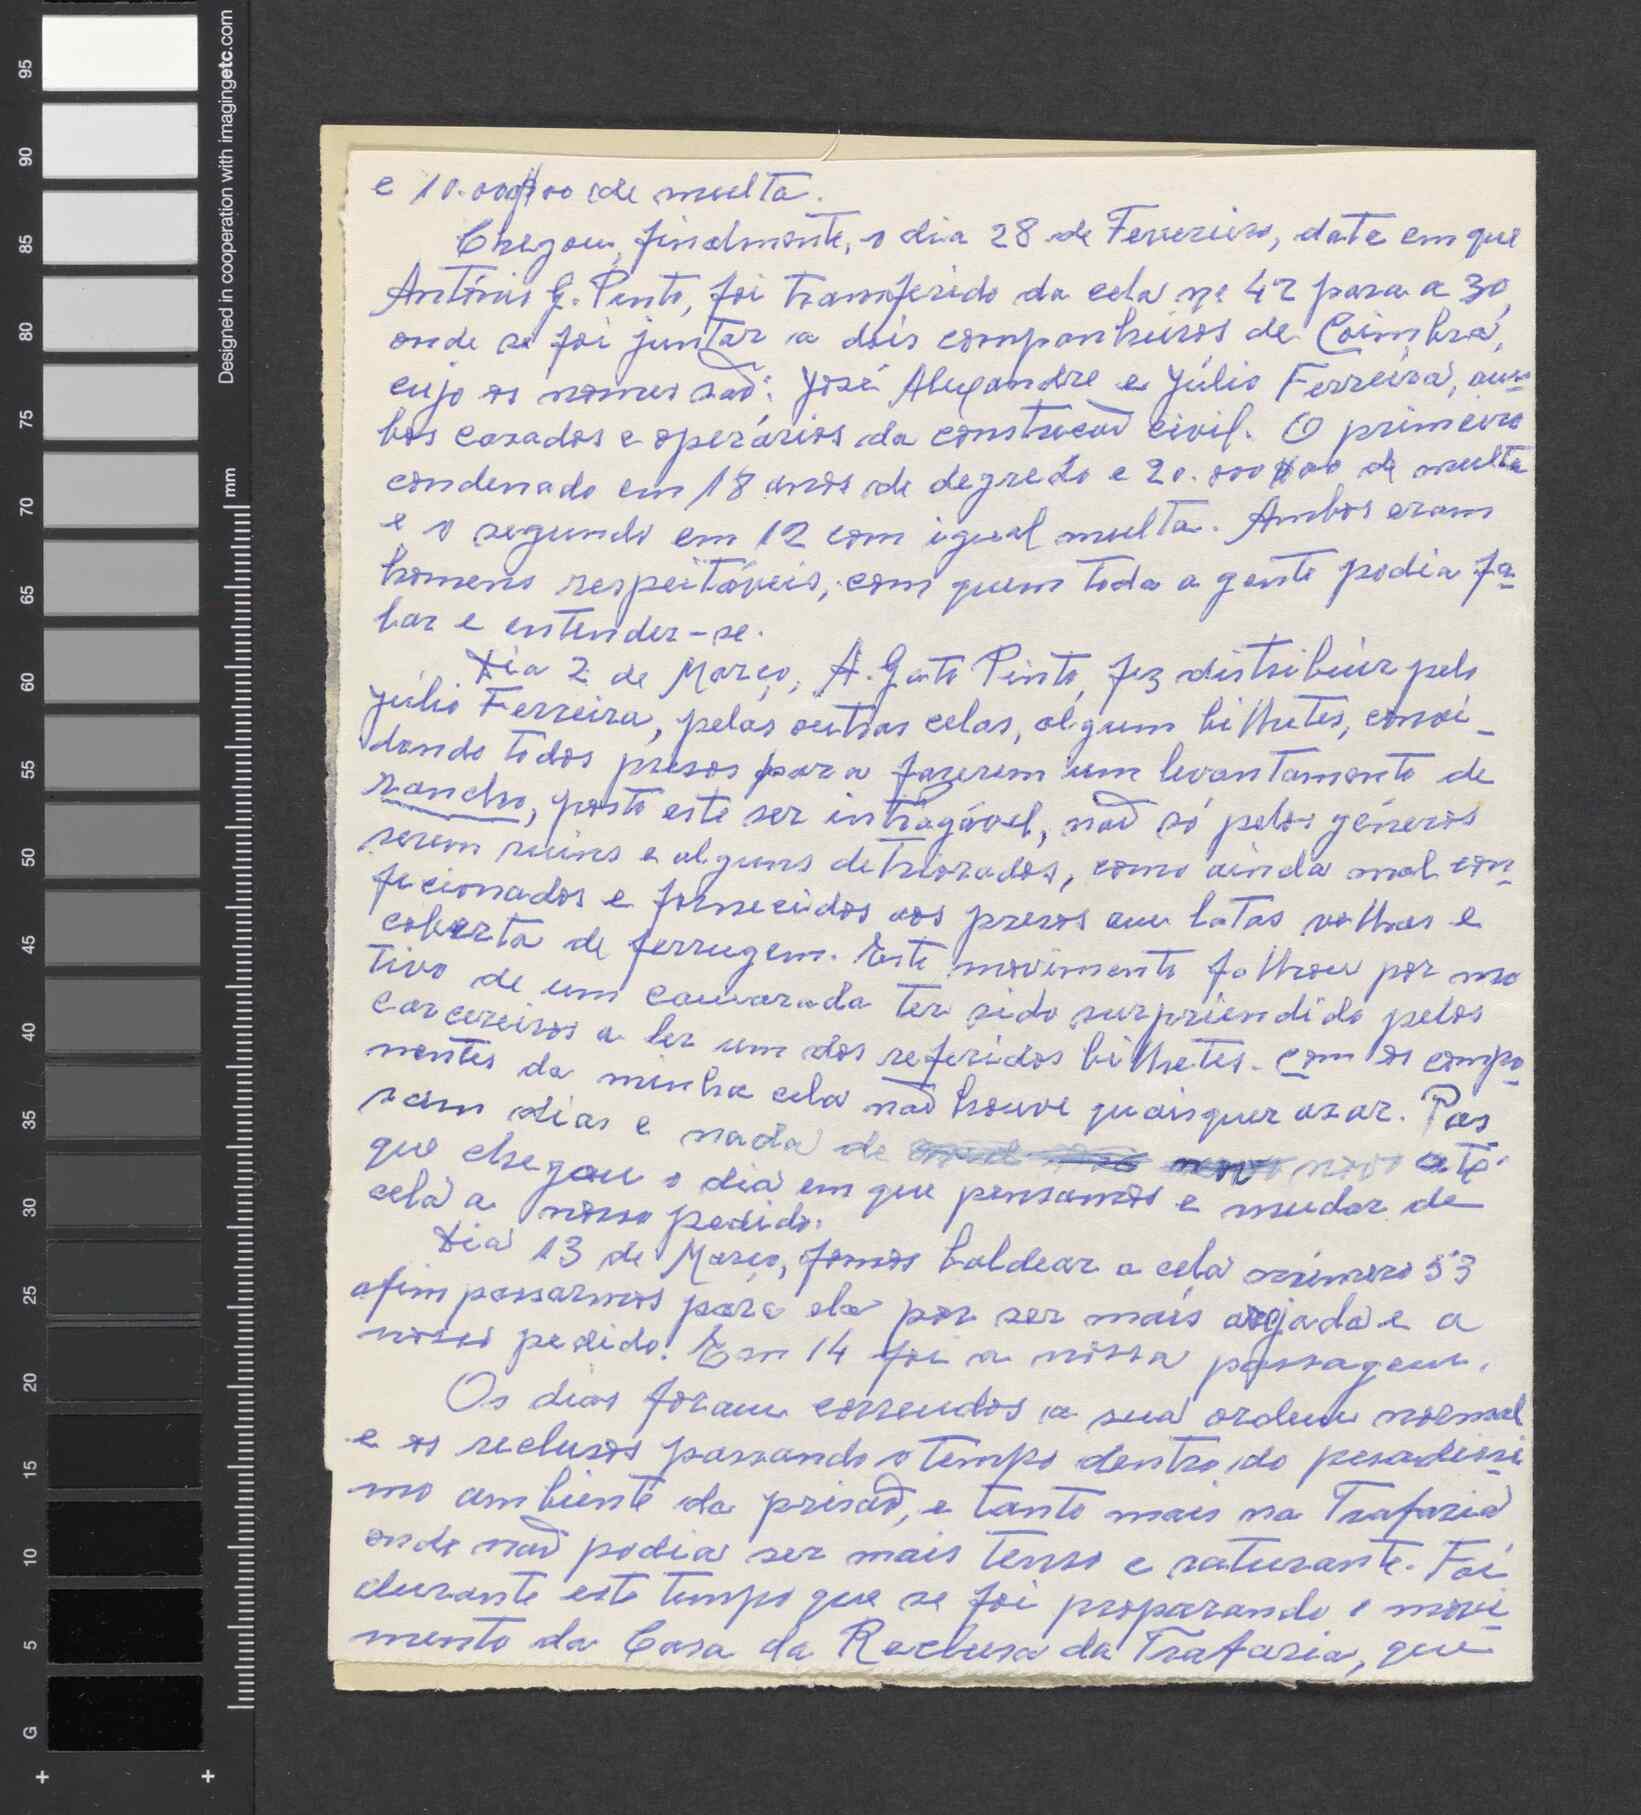 e 10.000$00 de multa.
Chegou, finalmente, o dia 28 de Fevereiro, data em que
António G. Pinto, foi transferido da cela nº 42 para a 30,
onde se foi juntar a dois companheiros de Coimbra,
cujo os nomes são: José Alexandre e Júlio Ferreira, am-
bos casados e operários da construção civil. O primeiro
condenado em 18 anos de degredo e 20.000$00 de multa
e o segundo em 12 com igual multa. Ambos eram
homens respeitáveis, com quem toda a gente podia fa-
lar e entender-se.
Dia 2 de Março, A. Gato Pinto, fez distribuir pelo
Júlio Ferreira, pelas outras celas, algum bilhetes, convi-
dando todos presos para fazerem um levantamento de
rancho, posto este ser intragável, não só pelos géneros
serem ruins e alguns detriorados, como ainda mal con-
fecionados e fornecidos aos presos em latas velhas e
coberta de ferrugem. Este movimento falhou por mo
tivo de um camarada ter sido surpriendido pelos
carcereiros a ler um dos referidos bilhetes. Com os compo-
nentes da minha cela não houve quaisquer azar. Pas
saram dias e nada de novo até
que chegou o dia em que pensamos e mudar de
cela a nosso pedido.
Dia 13 de Março, fomos baldear a cela número 53
afim passarmos para ela por ser mais arejada e a
nosso pedido. Em 14 foi a nossa passagem.
Os dias foram correndos a sua ordem normal
e os reclusos passando o tempo dentro do pesadissi-
mo ambiente da prisão, e tanto mais na Trafaria
onde não podia ser mais tenso e saturante. Foi
durante este tempo que se foi preparando o movi-
mento da Casa da Reclusa da Trafaria, que
Designed in cooperation with imagingetc.com
mm
95
90
85
80
75
70
65
60
55
50
45
40
35
30
25
20
15
10
5
G